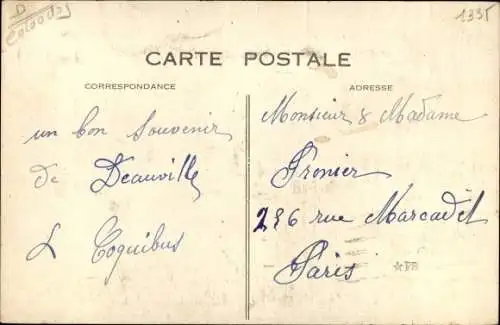 D
Calvados
1335
CARTE POSTALE
CORRESPONDANCE
ADRESSE
un bon Souvenir
de Deauville
L Coquibus
Monsieur & Madame
Pronier
236 rue Marcadet
Paris